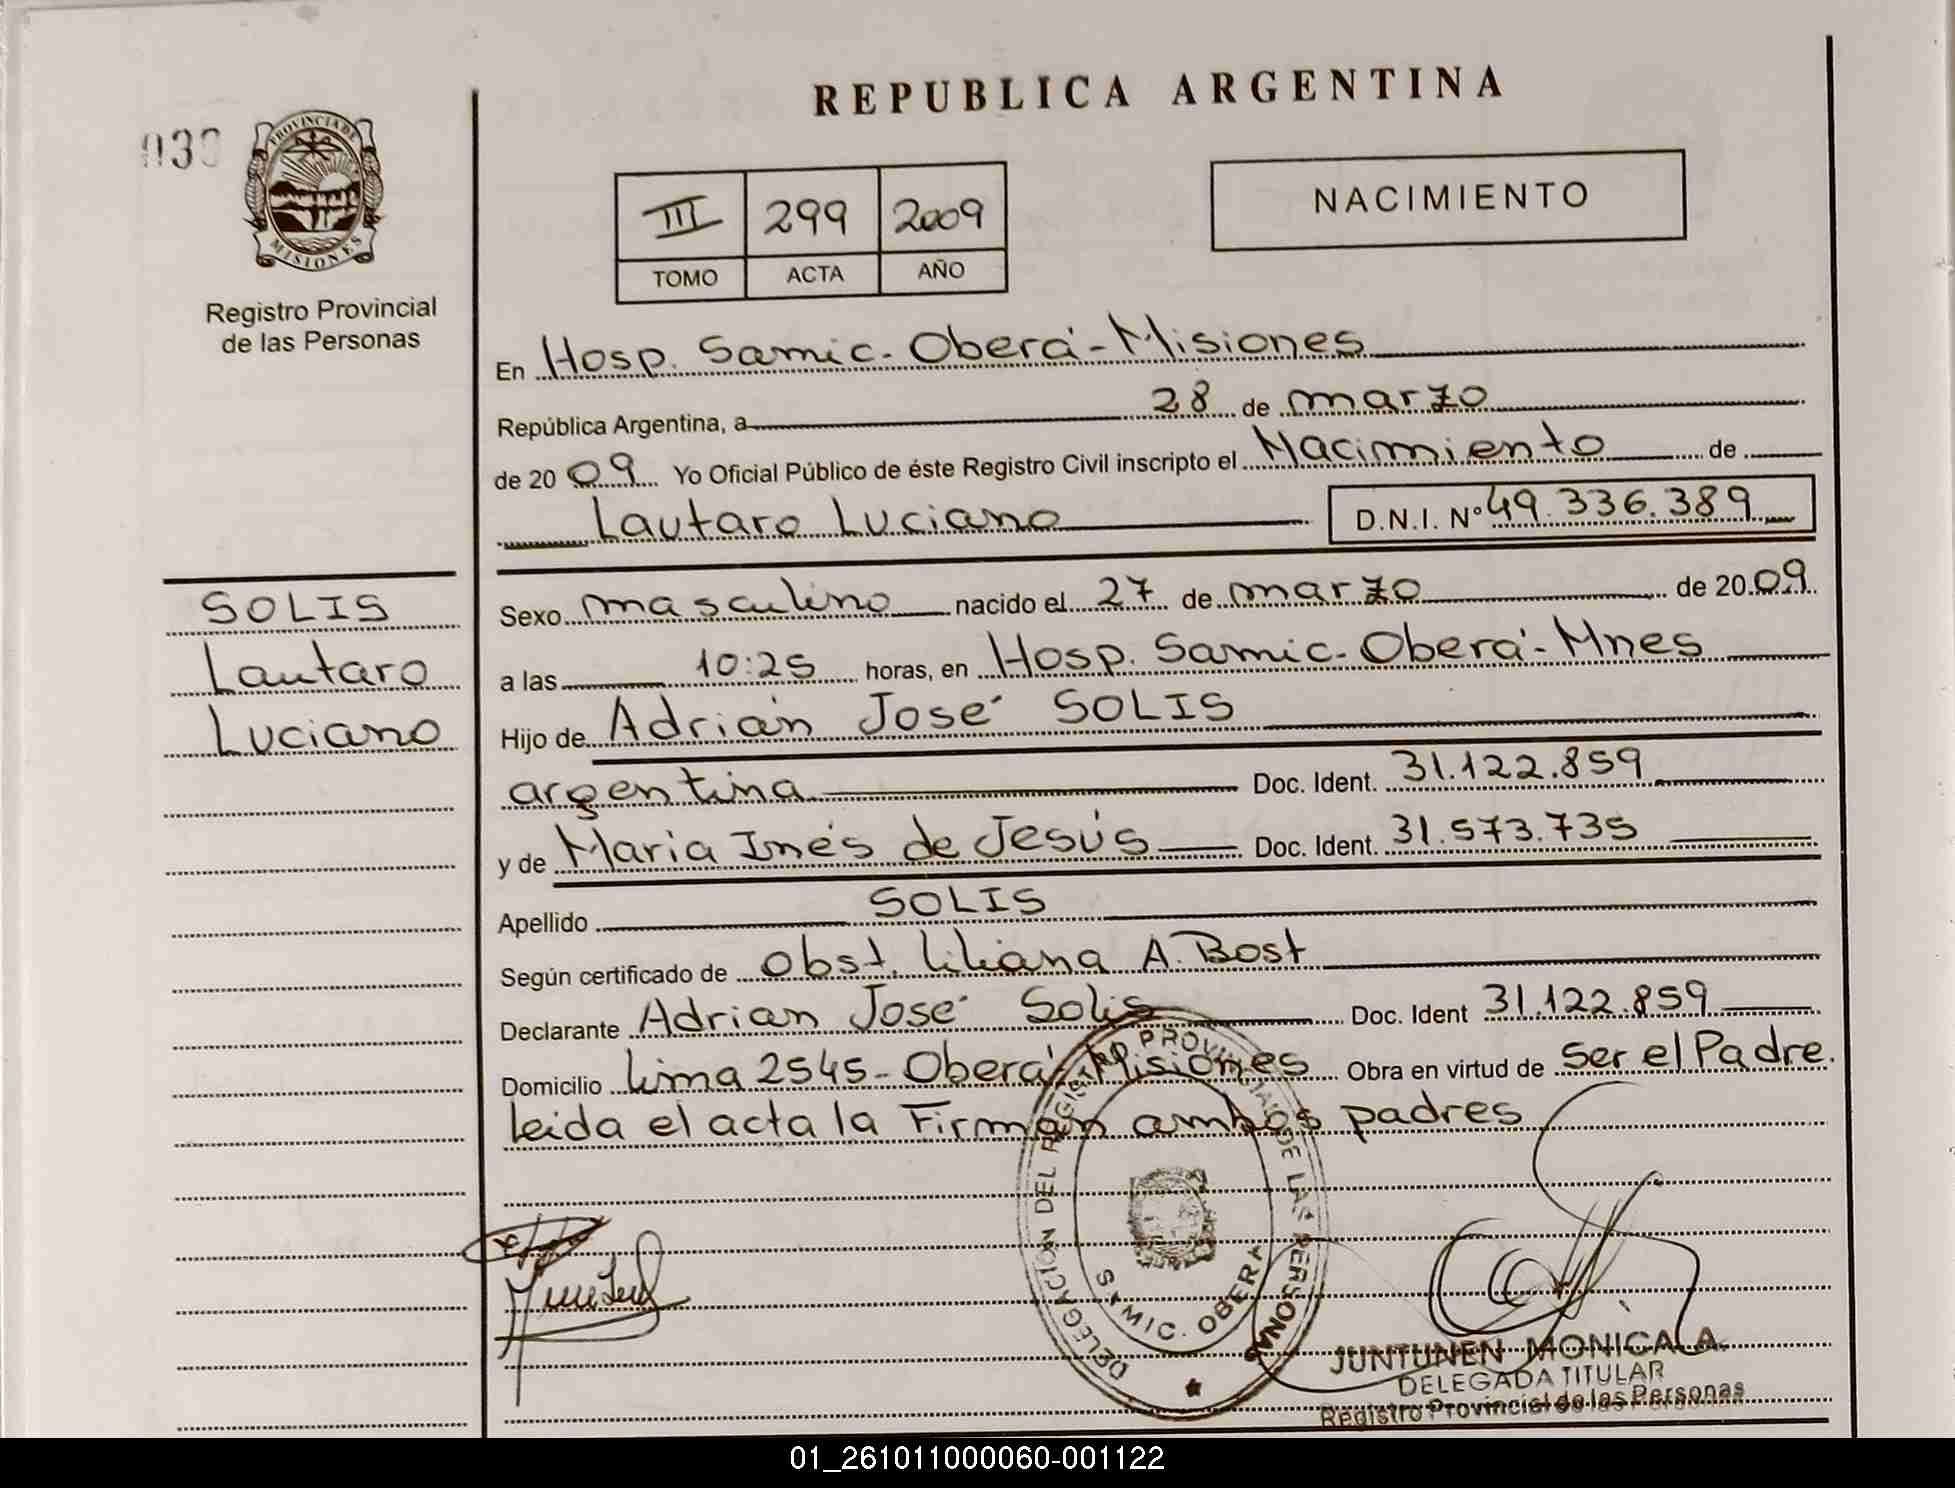 REPUBLICA ARGENTINA
PROVINCIA DE
MISIONES
Registro Provincial
de las Personas
III 299 2009
TOMO ACTA AÑO
NACIMIENTO
En Hosp. Samic. Oberá - Misiones
República Argentina, a 28 de marzo
de 2009 Yo Oficial Público de éste Registro Civil inscripto el Nacimiento de
Lautaro Luciano D.N.I. Nº 49.336.389
SOLIS
Lautaro
Luciano
Sexo masculino nacido el 27 de marzo de 2009
a las 10:25 horas, en Hosp. Samic. Oberá - Mnes
Hijo de Adrián José SOLIS
argentina Doc. Ident. 31.122.859
y de Maria Inés de Jesús Doc. Ident. 31.573.735
Apellido SOLIS
Según certificado de Obst. Liliana A. Bost
Declarante Adrian José Solis Doc. Ident 31.122.859
Domicilio Lima 2545 - Oberá - Misiones Obra en virtud de Ser el Padre.
leida el acta la Firman ambos padres
DELEGACION DEL REGISTRO PROVINCIAL DE LAS PERSONAS
SAMIC. OBERA
JUNTUNEN MONICA A.
DELEGADA TITULAR
Registro Provincial de las Personas
01_261011000060-001122